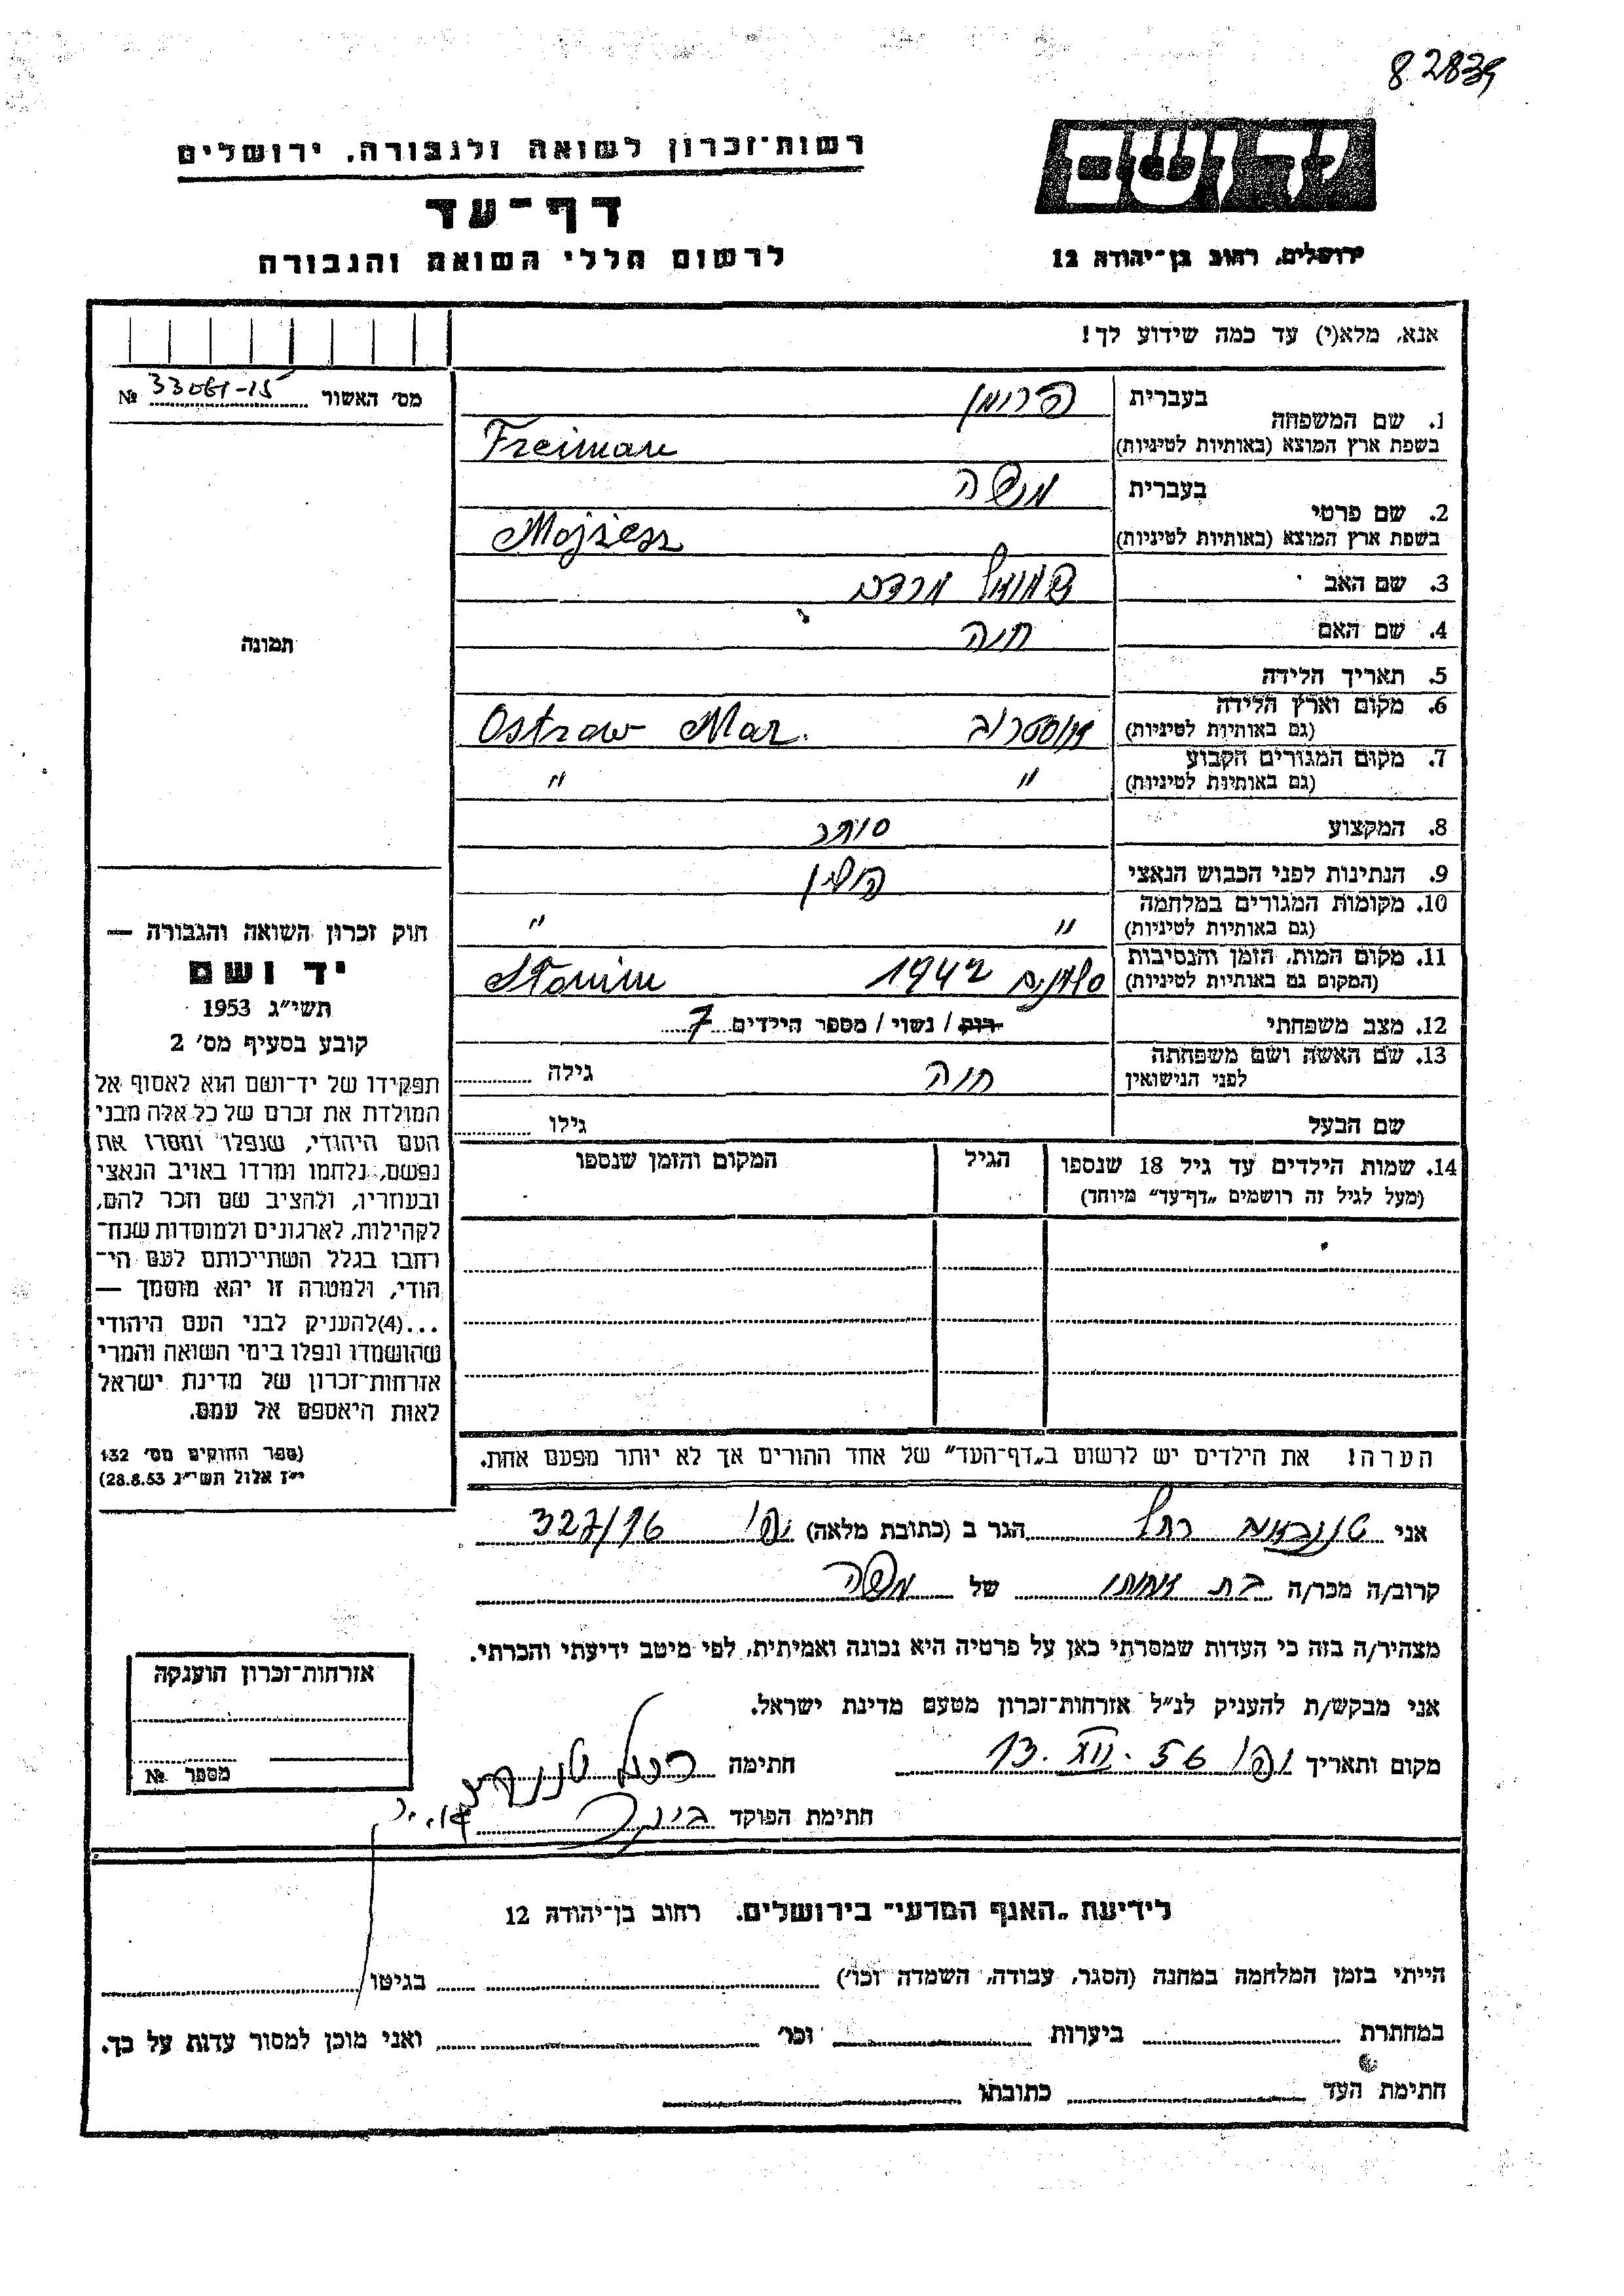 8 2839
יד ושם
ירושלים, רחוב בן־יהודה 12
רשות־זכרון לשואה ולגבורה, ירושלים
דף־עד
לרשום חללי השואה והגבורה
אנא, מלא(י) עד כמה שידוע לך!
מס' האשור № 33061-15
תמונה
1. שם המשפחה בעברית פרימן
בשפת ארץ המוצא (באותיות לטיניות) Freiman
2. שם פרטי בעברית משה
בשפת ארץ המוצא (באותיות לטיניות) Mojżesz
3. שם האב שמואל מרדכי
4. שם האם חנה
5. תאריך הלידה
6. מקום וארץ הלידה (גם באותיות לטיניות) אוסטרוב Ostrow Maz.
7. מקום המגורים הקבוע (גם באותיות לטיניות) " "
8. המקצוע סוחר
9. הנתינות לפני הכבוש הנאצי פולין
10. מקומות המגורים במלחמה (גם באותיות לטיניות) " "
11. מקום המות, הזמן והנסיבות (המקום גם באותיות לטיניות) סלונים 1942 Słonim
12. מצב משפחתי רווק / נשוי / מספר הילדים 7
13. שם האשה ושם משפחתה לפני הנישואין חנה גילה
שם הבעל גילו
14. שמות הילדים עד גיל 18 שנספו (מעל לגיל זה רושמים „דף־עד" מיוחד) הגיל המקום והזמן שנספו
הערה! את הילדים יש לרשום ב„דף־העד" של אחד ההורים אך לא יותר מפעם אחת.
חוק זכרון השואה והגבורה —
יד ושם
תשי"ג 1953
קובע בסעיף מס' 2
תפקידו של יד־ושם הוא לאסוף אל
המולדת את זכרם של כל אלה מבני
העם היהודי, שנפלו ומסרו את
נפשם, נלחמו ומרדו באויב הנאצי
ובעוזריו, ולהציב שם וזכר להם,
לקהילות, לארגונים ולמוסדות שנח־
רבו בגלל השתייכותם לעם הי־
הודי, ולמטרה זו יהא מוסמך —
...(4)להעניק לבני העם היהודי
שהושמדו ונפלו בימי השואה והמרי
אזרחות־זכרון של מדינת ישראל
לאות היאספם אל עמם.
(ספר החוקים מס' 132
י"ז אלול תשי"ג 28.8.53)
אני רחל הגר ב (כתובת מלאה) יפו 327/16
קרוב/ה מכר/ה בת אחותו של משה
מצהיר/ה בזה כי העדות שמסרתי כאן על פרטיה היא נכונה ואמיתית, לפי מיטב ידיעתי והכרתי.
אני מבקש/ת להעניק לנ"ל אזרחות־זכרון מטעם מדינת ישראל.
מקום ותאריך יפו 13. XII. 56 חתימה רחל
חתימת הפוקד
אזרחות־זכרון הוענקה
מספר №
לידיעת „האגף המדעי" בירושלים, רחוב בן־יהודה 12
הייתי בזמן המלחמה במחנה (הסגר, עבודה, השמדה וכו') בגיטו
במחתרת ביערות וכו' ואני מוכן למסור עדות על כך.
חתימת העד כתובתו